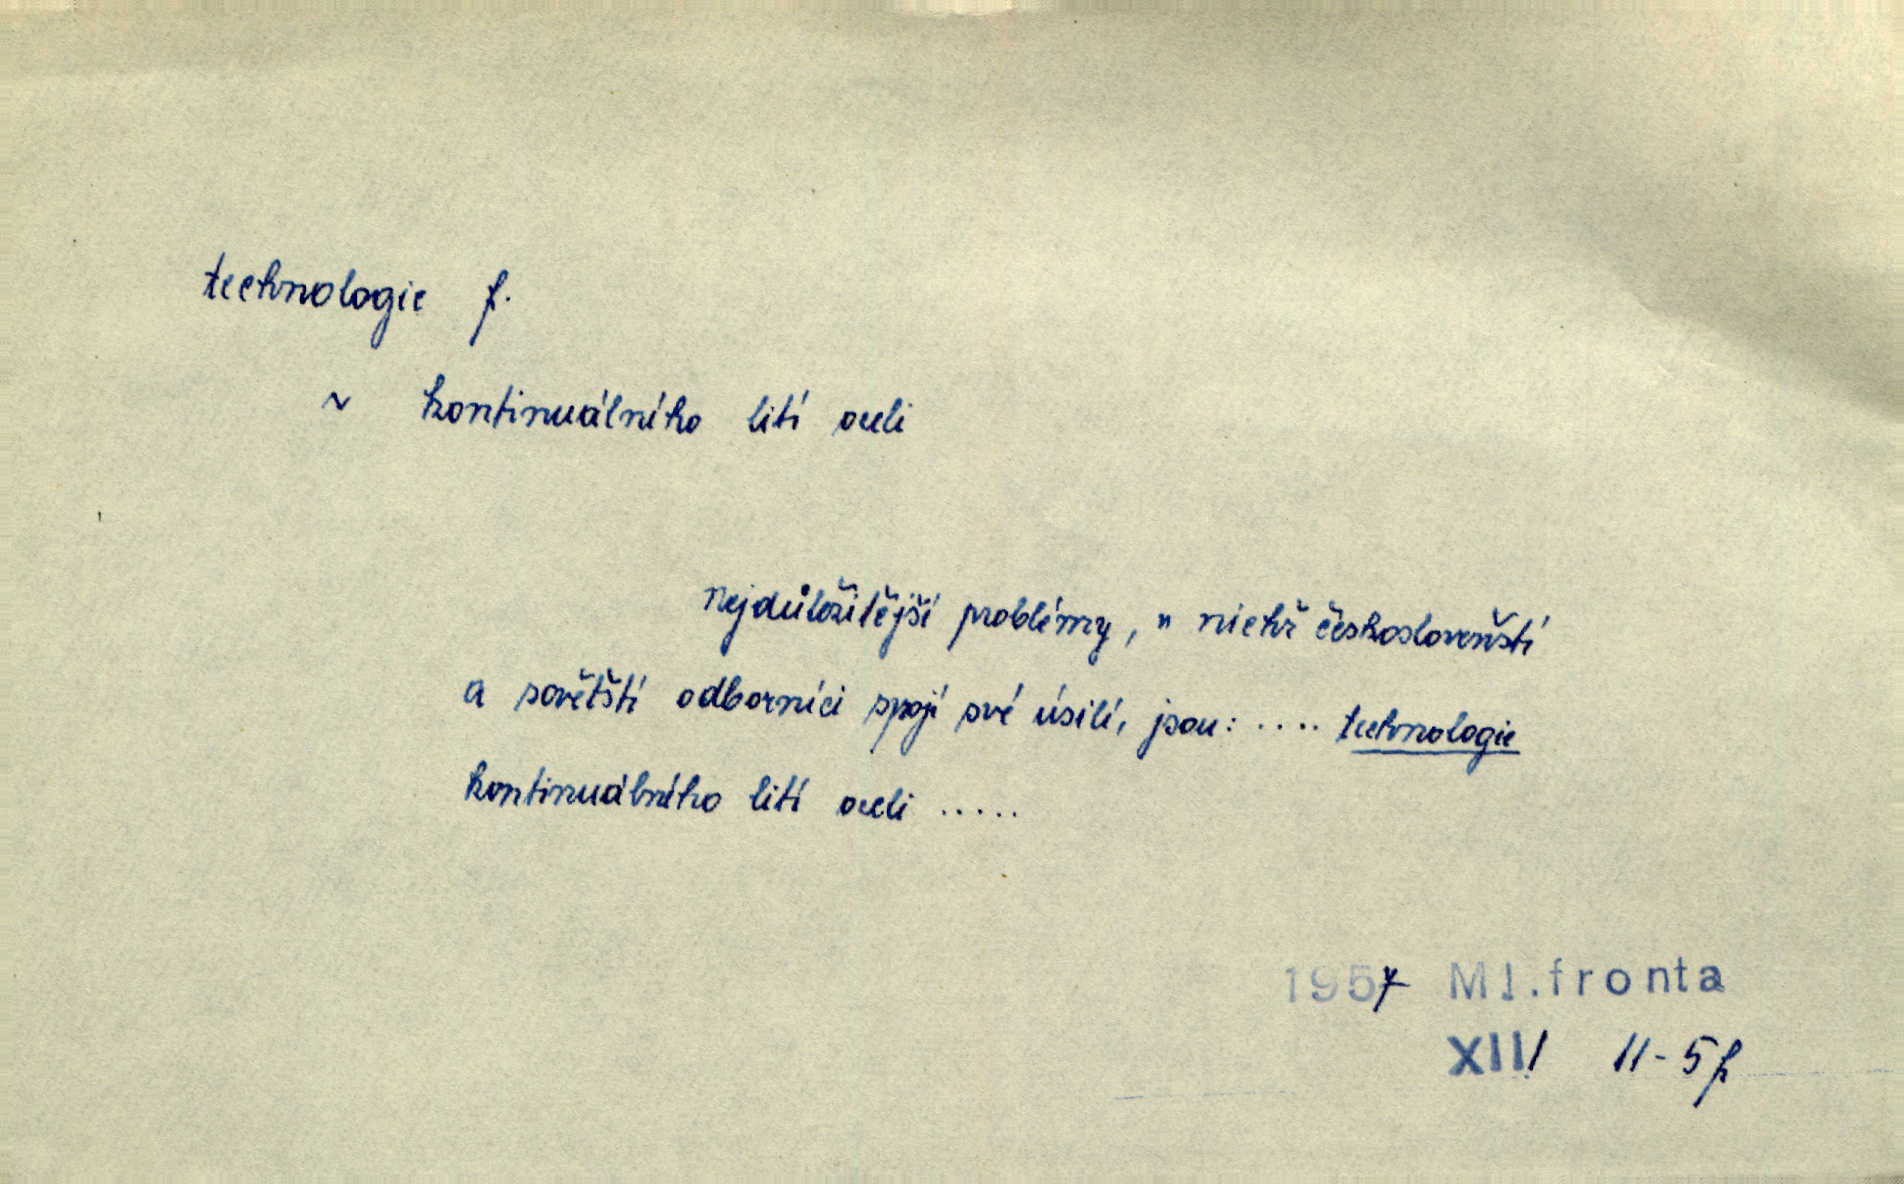 technologie f.
~ kontinuálního lití oceli
Nejdůležitější problémy, v nichž českoslovenští
a sovětští odborníci spojí své úsilí, jsou: .... technologie
kontinuálního lití oceli .....
1957 Ml.fronta
XIII 11-5f